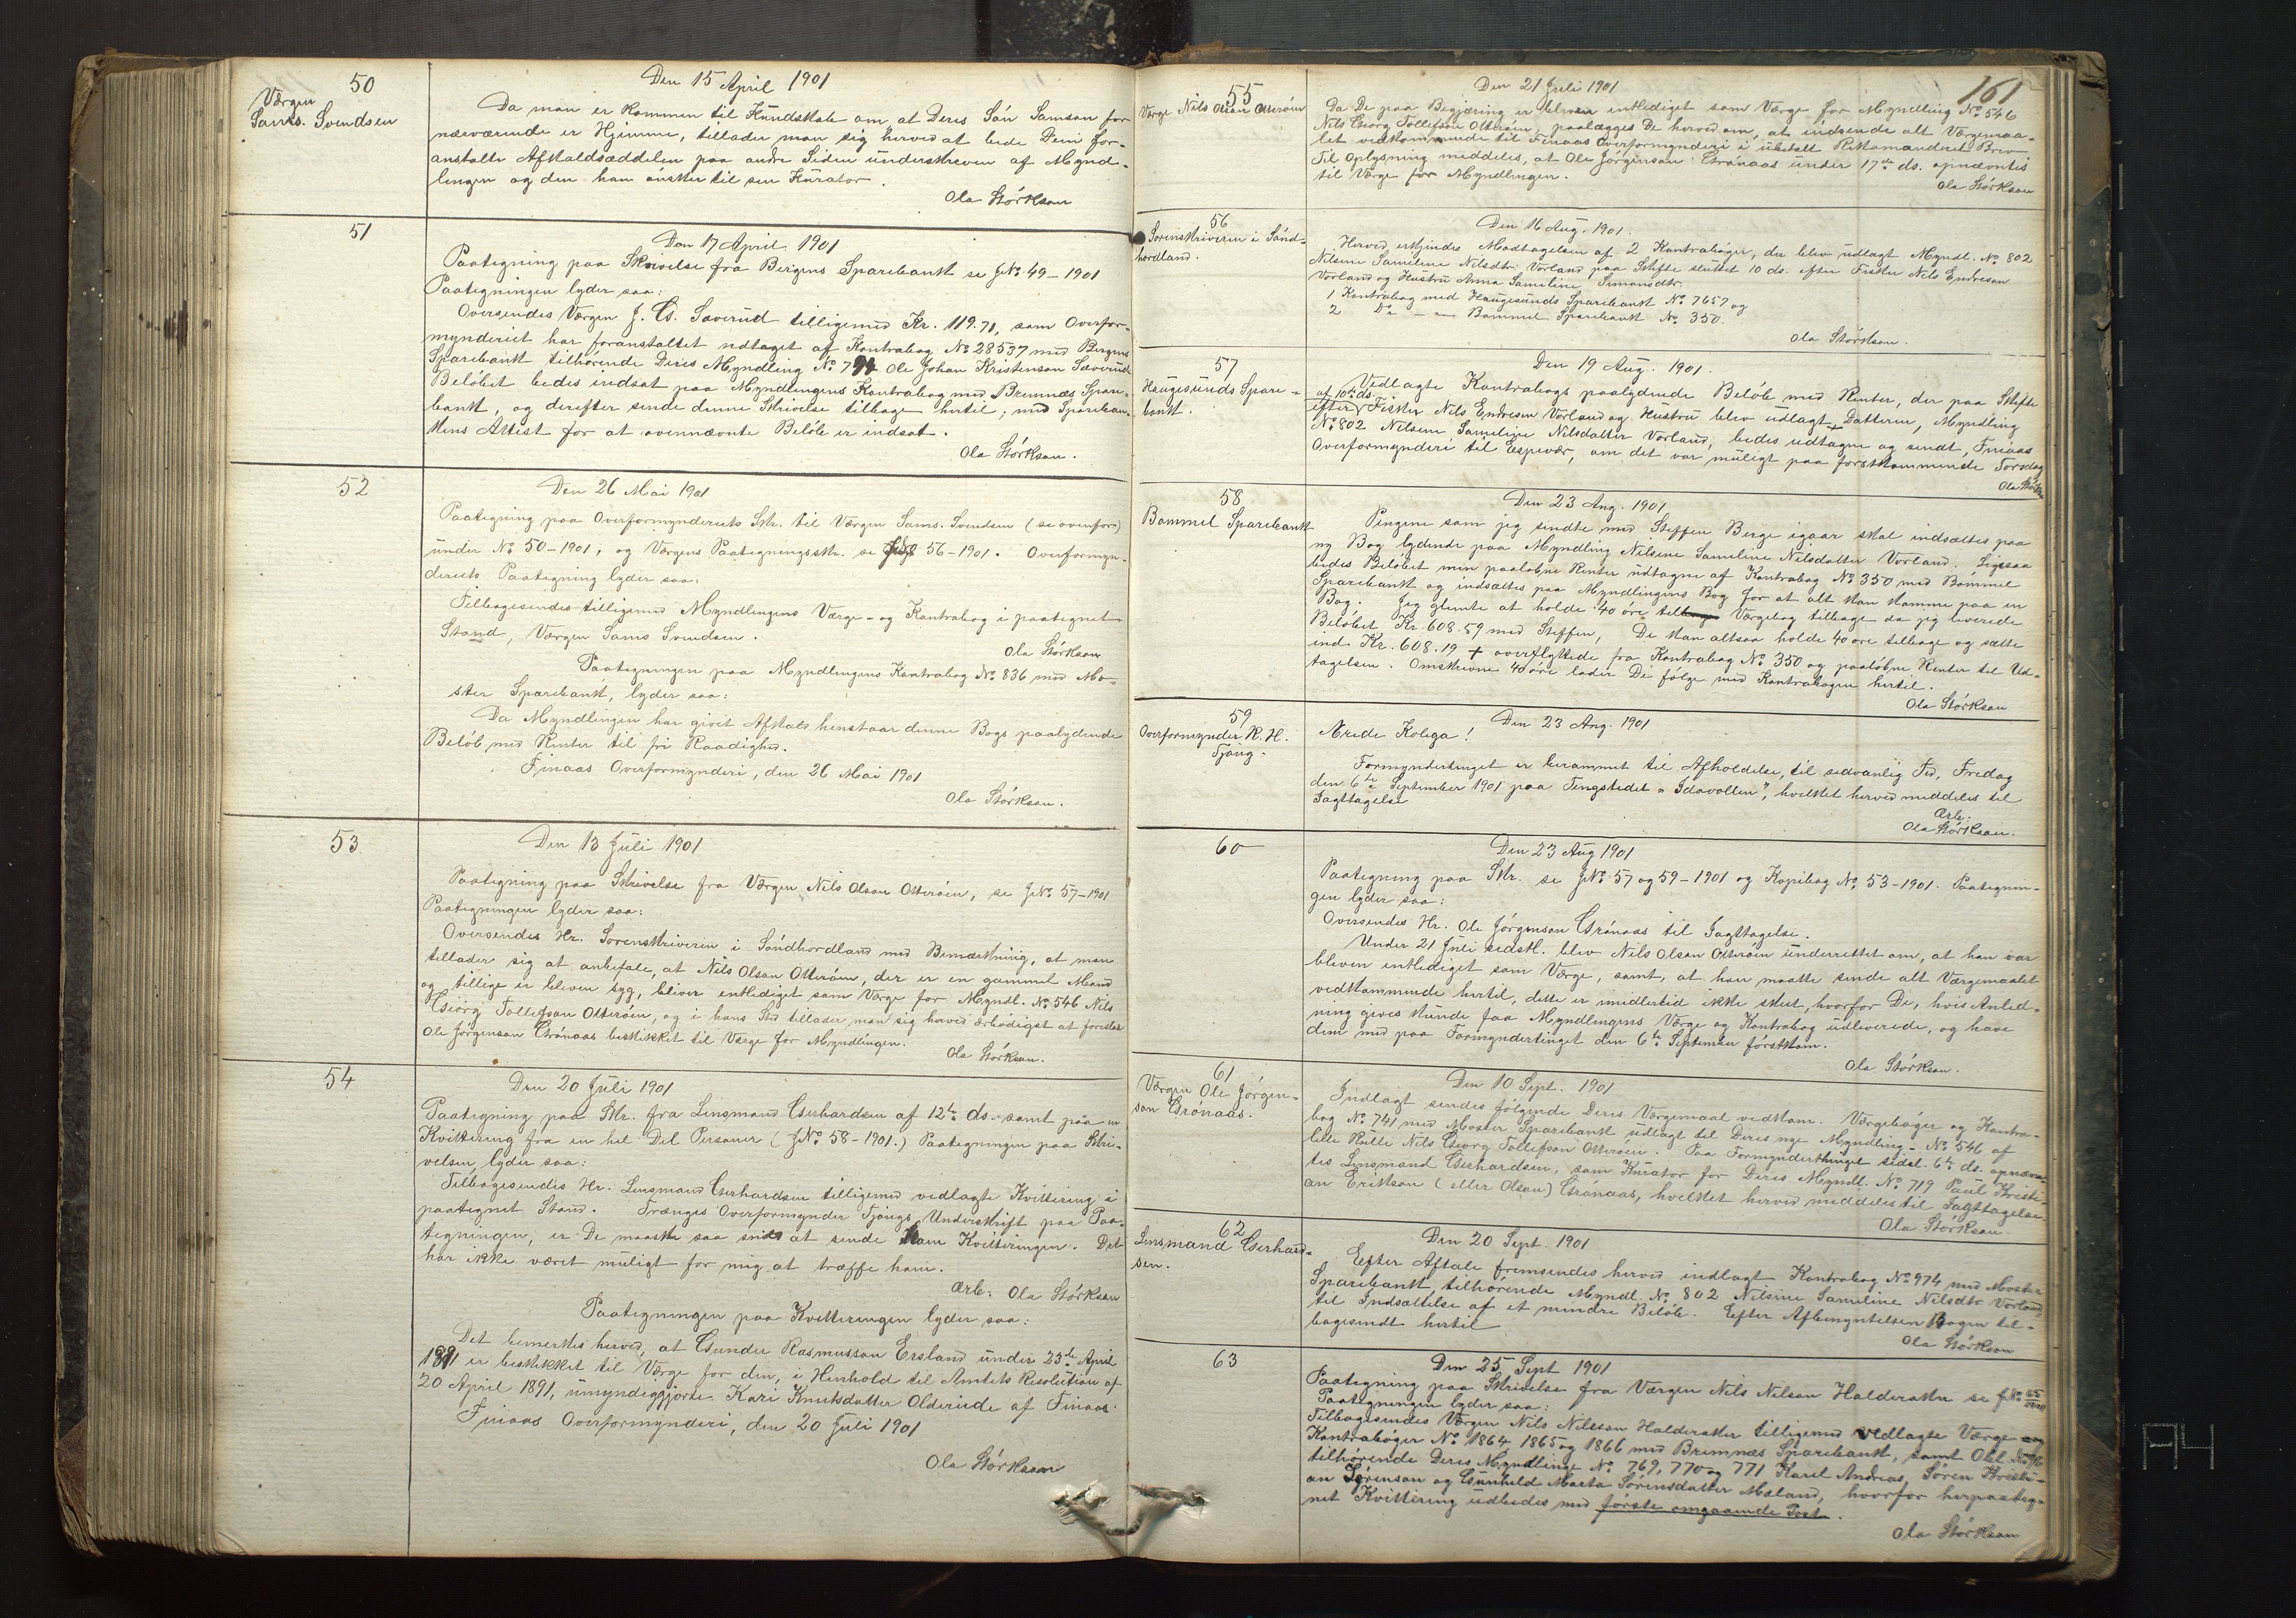 50
Værgen
Sams. Svendsen
Den 15 April 1901
Da man er kommen til Kundskab om at Deres Sön Samson for
nærværende er Hjemme, tillader man sig herved at bede Dem for-
anstalte Afkaldsseddelen paa andre Siden underskreven af Mynd-
lingen og den han önsker til sin Kurator.
Ola Störkson
51
Den 17 April 1901
Paategning paa Skrivelse fra Bergens Sparebank se J№ 49-1901
Paategningen lyder saa:
Oversendes Værgen J. G. Saverud tilligemed Kr. 119.71, som Overfor-
mynderiet har foranstaltet udtaget af Kontrabog № 28537 med Bergens
Sparebank tilhörende Deres Myndling № Ole Johan Kristenson Sæverud
Belöbet bedes indsat paa Myndlingens Kontrabog med Bremnæs Spare-
bank, og derefter sende denne Skrivelse tilbage hertil, med Spareban-
kens Attest for at ovennævnte Belöb er indsat.
Ola Störkson.
52
Den 26 Mai 1901
Paategning paa Overformynderiets Skr. til Værgen Sams. Svendsen (se ovenfor)
under № 50-1901, og Værgens Paategningsskr. se 56-1901. Overformyn-
deriets Paategning lyder saa:
Tilbagesendes tilligemed Myndlingens Værge- og Kontrabog i paategnet
Stand, Værgen Sams Svendsen.
Ola Störkson
Paategningen paa Myndlingens Kontrabog № 836 med Mo-
ster Sparebank, lyder saa:
Da Myndlingen har givet Afkald henstaar denne Bogs paalydende
Belöb med Renter til fri Raadighed.
Finaas Overformynderi, den 26 Mai 1901
Ola Störkson.
53
Den 13 Juli 1901
Paategning paa Skrivelse fra Værgen Nils Olson Otteröen, se J№ 57-1901
Paategningen lyder saa:
Oversendes Hr. Sorenskriveren i Söndhordland med Bemærkning, at man
tillader sig at anbefale, at Nils Olson Otteröen, der er en gammel Mand
og tillige er bleven syg, bliver entlediget som Værge for Myndl. № 546 Nils
Georg Tollefson Otteröen, og i hans Sted tillader man sig herved ærbödigst at foreslaa
Ole Jörgenson Grönaas beskikket til Værge for Myndlingen.
Ola Störkson.
54
Den 20 Juli 1901
Paategning paa Skr. fra Lensmand Gerhardsen af 12te ds. samt paa en
Kvittering fra en hel Del Personer (J№ 58-1901.) Paategningen paa Skri-
velsen lyder saa:
Tilbagesendes Hr. Lensmand Gerhardsen tilligemed vedlagte Kvittering i
paategnet Stand. Trænges Overformynder Tjongs Underskrift paa Paa-
tegningen, er De maaske saa snild at sende ham Kvitteringen. Det
har ikke været muligt for mig at træffe ham.
Ærb: Ola Störkson
Paategningen paa Kvitteringen lyder saa:
Det bemerkes herved, at Gunder Rasmusson Ersland under 23de April
1891 er beskikket til Værge for den, i Henhold til Amtets Resolution af
20 April 1891, umyndiggjorte Kari Knutsdatter Olderiede af Finaas.
Finaas Overformynderi, den 20 Juli 1901
Ola Störkson
161
55
Værge Nils Olson Otteröen
Den 21 Juli 1901
Da De paa Begjæring er bleven entlediget som Værge for Myndling № 546
Nils Georg Tollefson Otteröen, paalægges De herved om, at indsende alt Værgemaa-
let vedkommende til Finaas Overformynderi i ubetalt Rekomanderet Brev
Til Oplysning meddeles, at Ole Jörgenson Grönaas under 17de ds. opnævntes
til Værge for Myndlingen.
Ola Störkson
56
Sorenskriveren i Sönd-
hordland.
Den 16 Aug. 1901.
Herved erkjendes Modtagelsen af 2 Kontraböger, der blev udlagt Myndl. № 802
Nilsine Sameline Nilsdtr. Vorland paa Skifte sluttet 10 ds. efter Fisker Nils Endreson
Vorland og Hustru Anna Sameline Simonsdtr.
1 Kontrabog med Haugesunds Sparebank № 7657 og
2 Do — " — Bömmel Sparebank № 350
Ola Störkson.
57
Haugesunds Spare-
bank.
Den 19 Aug. 1901.
Vedlagte Kontrabogs paalydende Belöb med Renter, der paa Skifte
af 10de ds.
efter Fisker Nils Endreson Vorland og Hustru blev udlagt Datteren, Myndling
№ 802 Nilsine Sameline Nilsdatter Vorland, bedes udtagne og sendt, Finaas
Overformynderi til Espevær, om det var muligt paa forstkommende Torsdag
Ola Störks
58
Bömmel Sparebank
Den 23 Aug. 1901
Pengene som jeg sendte med Steffen Berge igaar skal indsættes paa
ny Bog lydende paa Myndling Nilsine Sameline Nilsdatter Vorland. Ligesaa
bedes Belöbet men paalöbne Renter udtagne af Kontrabog № 350 med Bömmel
Sparebank og indsættes paa Myndlingens Bog for at alt kan komme paa en
Bog. Jeg glemte at holde 40 öre Værgebog tilbage da jeg leverede
Belöbet Kr. 608.59 med Steffen, De kan altsaa holde 40 öre tilbage og sætte
ind Kr. 608.19 + overflyttede fra Kontrabog № 350 og paalöbne Renter til Ud-
tagelsen. Omskrevne 40 öre lader De fölge med Kontrabogen hertil.
Ola Störkson
59
Overformynder R. H.
Tjöng.
Den 23 Aug. 1901
Ærede Kolega!
Formyndertinget er berammet til Afholdelse, til sedvanlig Tid, Fredag
den 6te September 1901 paa Tingstedet "Idavollen", hvilket herved meddeles til
Iagttagelse
Ærb:
Ola Störkson.
60
Den 23 Aug 1901
Paategning paa Skr. se J№ 57 og 59-1901 og Kopibog № 53-1901. Paategnin-
gen lyder saa:
Oversendes Hr. Ole Jörgenson Grönaas til Iagttagelse.
Under 21 Juli sidstl. blev Nils Olson Otteröen underrettet om, at han var
bleven entlediget som Værge, samt, at han maatte sende alt Værgemaalet
vedkommende hertil, dette er imidlertid ikke skeet, hvorfor De, hvis Anled-
ning gives kunde faa Myndlingens Værge og Kontrabog udleverede, og have
dem med paa Formyndertinget den 6te September förstkom.
Ola Störkson.
61
Værgen Ole Jörgen-
son Grönaas.
Den 10 Sept. 1901
Indlagt sendes fölgende Deres Værgemaal vedkom. Værgeböger og Kontra-
bog № 741 med Moster Sparebank udlagt til Deres nye Myndling - № 546 af
lille Rulle Nils Georg Tollefson Otteröen. Paa Formynderthinget sidstl. 6te ds. opnævn-
tes Lensmand Gerhardsen, som Kurator for Deres Myndl. № 719 Paul Kristi-
an Erikson (eller Olson) Grönaas, hvilket herved meddeles til Iagttagelse.
Ola Störkson.
62
Lensmand Gerhard-
sen.
Den 20 Sept. 1901
Eefter Aftale fremsendes herved indlagt Kontrabog № 974 med Moster
Sparebank, tilhörende Myndl. № 802 Nilsine Sameline Nilsdtr. Vorland
til Indsættelse af et mindre Belöb. Eefter Afbenyttelsen Bogen til-
bagesendt hertil
Ola Störkson
63
Den 25 Sept 1901
Paategning paa Skrivelse fra Værgen Nils Nilson Halderaker se J№
Paategningen lyder saa:
Tilbagesendes Værgen Nils Nilsson Halderaker tilligemed vedlagte Værge og
Kontraböger № 1864 1865 og 1866 med Bremnæs Sparebank, samt Obl.
tilhörende Deres Myndlinge № 769, 770 og 771 Karl Andreas, Sören Kristi-
an Sörenson og Gunhild Marta Sörensdatter Mæland, hvorfor herpaateg-
net Kvittering udbedes med förste omgaaende Post.
Ola Störkson